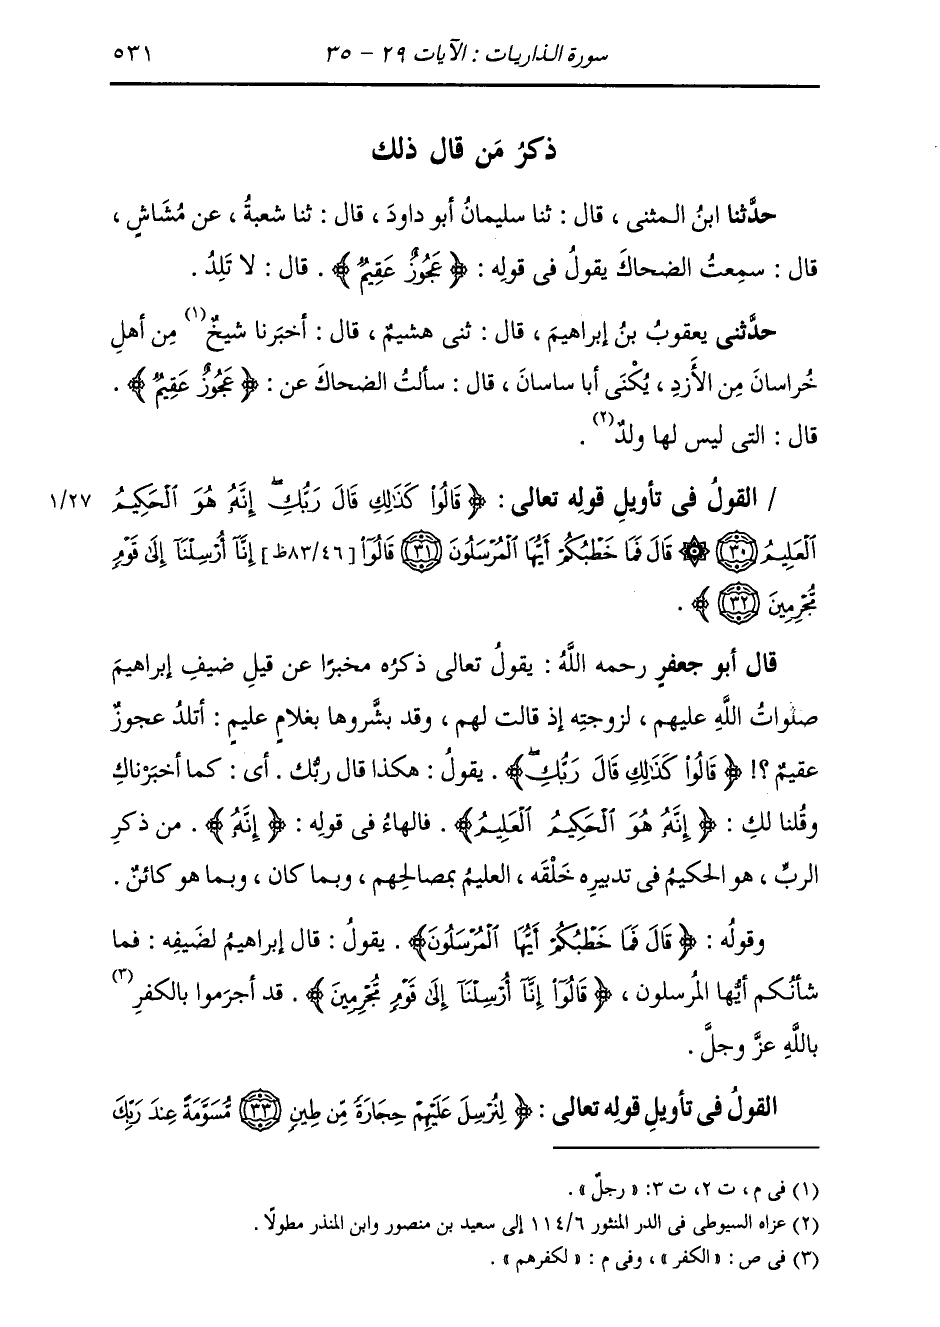 سورة الذاريات : الآيات ٢٩ - ٣٥ ٥٣١
ذكرُ مَن قال ذلك
حدَّثنا ابنُ المثنى ، قال : ثنا سليمانُ أبو داودَ ، قال : ثنا شعبةُ ، عن مُشَاشٍ ،
قال : سمِعتُ الضحاكَ يقولُ فى قولِه : ﴿ عَجُوزٌ عَقِيمٌ ﴾ . قال : لا تَلِدُ .
حدَّثنى يعقوبُ بنُ إبراهيمَ ، قال : ثنى هشيمٌ ، قال : أخبَرنا شيخٌ(١) مِن أهلِ
خُراسانَ مِن الأَزدِ ، يُكْنَى أبا ساسانَ ، قال : سألتُ الضحاكَ عن : ﴿ عَجُوزٌ عَقِيمٌ ﴾ .
قال : التى ليس لها ولدٌ(٢) .
/ القولُ فى تأويلِ قولِه تعالى : ﴿ قَالُوا۟ كَذَٰلِكِ قَالَ رَبُّكِ ۖ إِنَّهُۥ هُوَ ٱلْحَكِيمُ ١/٢٧
ٱلْعَلِيمُ ﴿٣٠﴾ ۞ قَالَ فَمَا خَطْبُكُمْ أَيُّهَا ٱلْمُرْسَلُونَ ﴿٣١﴾ قَالُوٓا۟ [٨٣/٤٦ظ] إِنَّآ أُرْسِلْنَآ إِلَىٰ قَوْمٍ
مُّجْرِمِينَ ﴿٣٢﴾ ﴾ .
قال أبو جعفرٍ رحمه اللَّهُ : يقولُ تعالى ذكرُه مخبرًا عن قيلِ ضيفِ إبراهيمَ
صلواتُ اللَّهِ عليهم ، لزوجتِه إذ قالت لهم ، وقد بشَّروها بغلامٍ عليمٍ : أتلدُ عجوزٌ
عقيمٌ ؟! ﴿ قَالُوا۟ كَذَٰلِكِ قَالَ رَبُّكِ ۖ ﴾ . يقولُ : هكذا قال ربُّك . أى : كما أخبَرْناكِ
وقُلنا لكِ : ﴿ إِنَّهُۥ هُوَ ٱلْحَكِيمُ ٱلْعَلِيمُ ﴾ . فالهاءُ فى قولِه : ﴿ إِنَّهُۥ ﴾ . من ذكرِ
الربِّ ، هو الحكيمُ فى تدبيرِه خَلْقَه ، العليمُ بمصالحِهم ، وبما كان ، وبما هو كائنٌ .
وقولُه : ﴿ قَالَ فَمَا خَطْبُكُمْ أَيُّهَا ٱلْمُرْسَلُونَ ﴾ . يقولُ : قال إبراهيمُ لضَيفِه : فما
شأنُكم أيُّها المُرسلون ، ﴿ قَالُوٓا۟ إِنَّآ أُرْسِلْنَآ إِلَىٰ قَوْمٍ مُّجْرِمِينَ ﴾ . قد أجرَموا بالكفرِ(٣)
باللَّهِ عزَّ وجلَّ .
القولُ فى تأويلِ قولِه تعالى : ﴿ لِنُرْسِلَ عَلَيْهِمْ حِجَارَةً مِّن طِينٍ ﴿٣٣﴾ مُّسَوَّمَةً عِندَ رَبِّكَ
(١) فى م ، ت ٢، ت ٣: « رجلٌ » .
(٢) عزاه السيوطى فى الدر المنثور ١١٤/٦ إلى سعيد بن منصور وابن المنذر مطولًا .
(٣) فى ص : « الكفر » ، وفى م : « لكفرهم » .